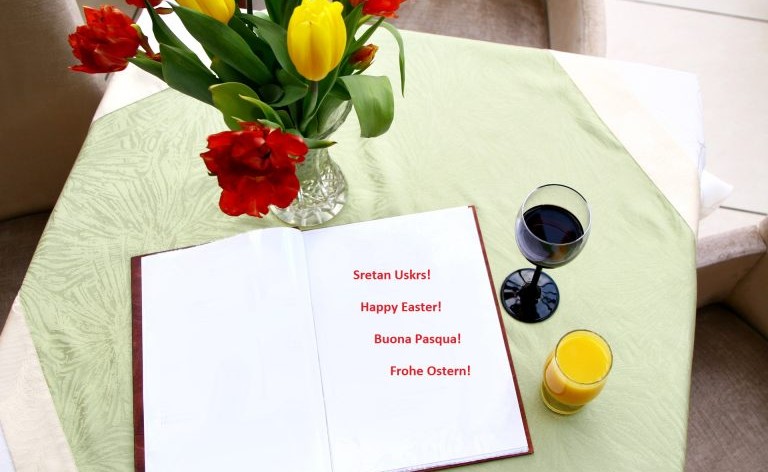 Sretan Uskrs!
Happy Easter!
Buona Pasqua!
Frohe Ostern!